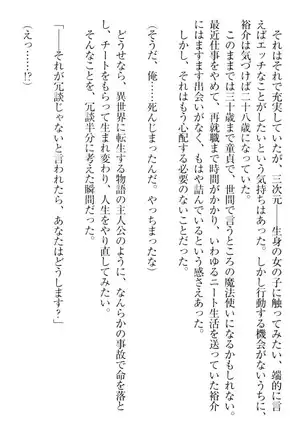 それはそれで充実していたが、三次元――生身の女の子に触ってみたい、端的に言
えばエッチなことがしたいという気持ちはあった。しかし行動する機会がないうちに、
裕介は気づけば二十八歳になっていた。
このままでは三十歳まで童貞で、世間で言うところの魔法使いになるかもしれない。
最近仕事をやめて、再就職まで時間がかかり、いわゆるニート生活を送っていた裕介
にはますます出会いがなく、もはや詰んでいるという感さえあった。
しかし、それはもう心配する必要のないことだった。
(そうだ、俺……死んじまったんだ。やっちまったな)
どうせなら、異世界に転生する物語の主人公のように、なんらかの事故で命を落と
し、チートをもらって生まれ変わり、人生をやり直してみたい。
そんなことを、冗談半分に考えた瞬間だった。
「――それが冗談じゃないと言われたら、あなたはどうします？」
(えっ……!?)